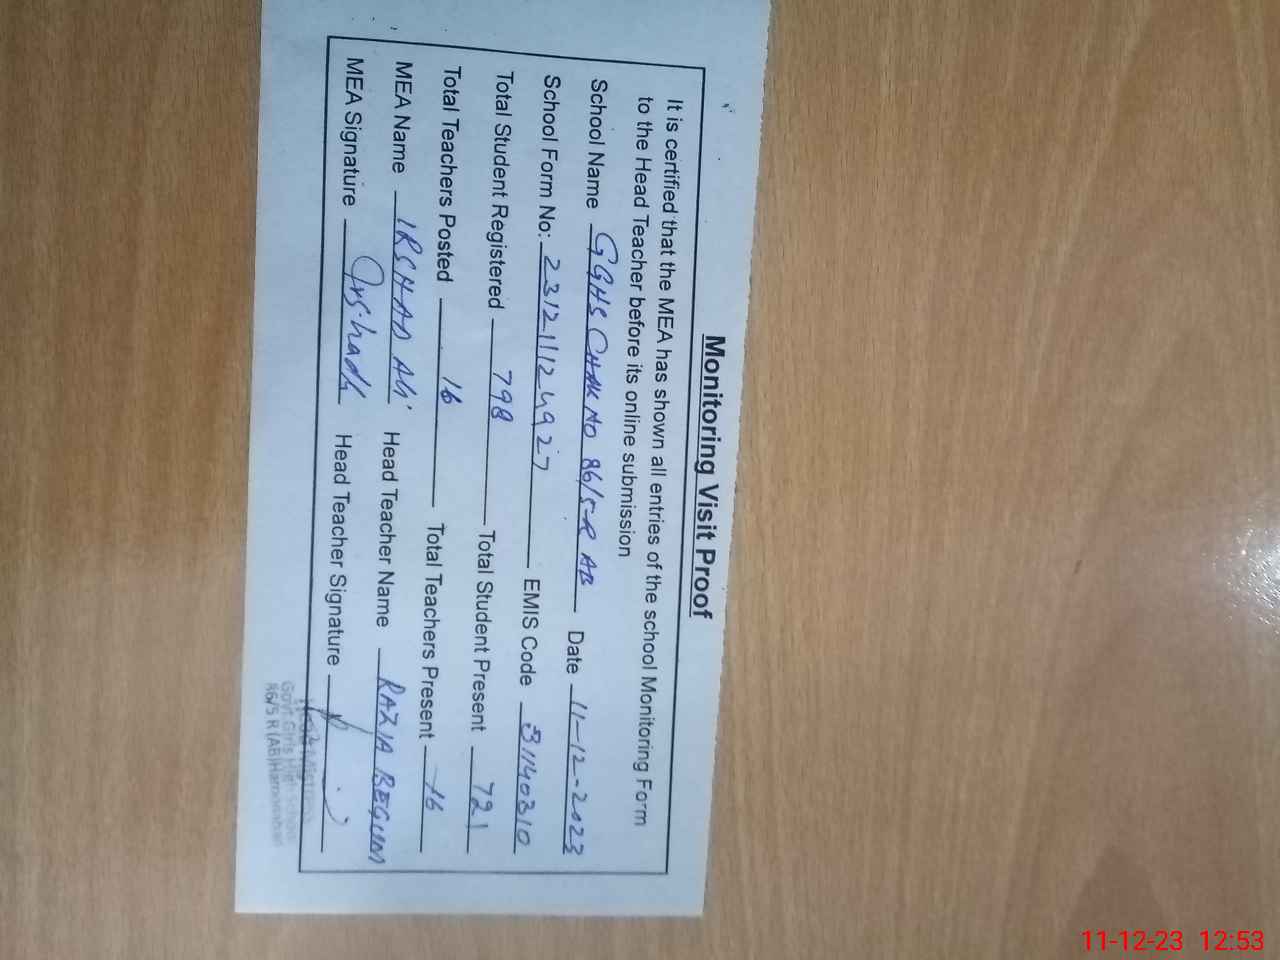 Monitoring Visit Proof
It is certified that the MEA has shown all entries of the school Monitoring Form
to the Head Teacher before its online submission
School Name GGHS CHAK NO 86/5-R AB Date 11-12-2023
School Form No: 231211124927 EMIS Code 31140310
Total Student Registered 798 Total Student Present 721
Total Teachers Posted 16 Total Teachers Present 16
MEA Name IRSHAD Ali Head Teacher Name RAZIA BEGUM
MEA Signature Irshad Head Teacher Signature
Head Mistress
Govt Girls High School
86/5 R (AB) Haroonabad
11-12-23 12:53